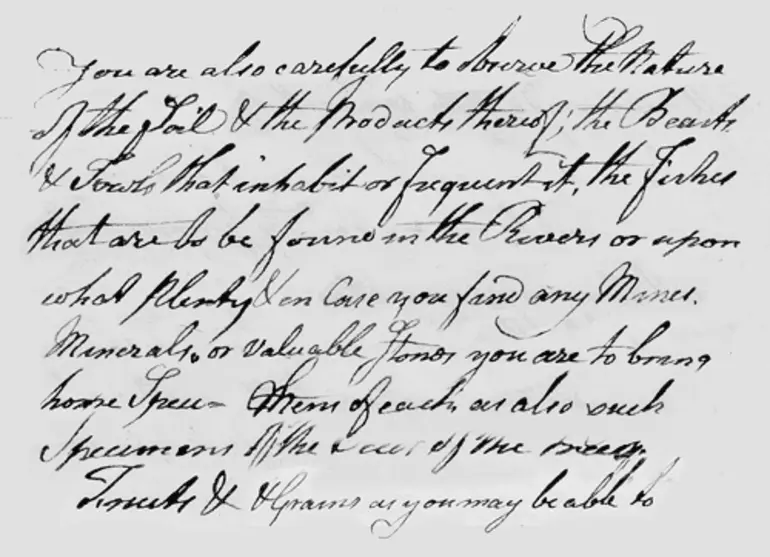 You are also carefully to observe the Nature
of the Soil & the Products thereof; the Beasts
& Fowls that inhabit or frequent it, the Fishes
that are to be found in the Rivers or upon
what Plenty & in Case you find any Mines.
Minerals, or valuable Stones you are to bring
home Speci= of each, as also such
Specimens of the of the
Fruits & & Grains as you may be able to